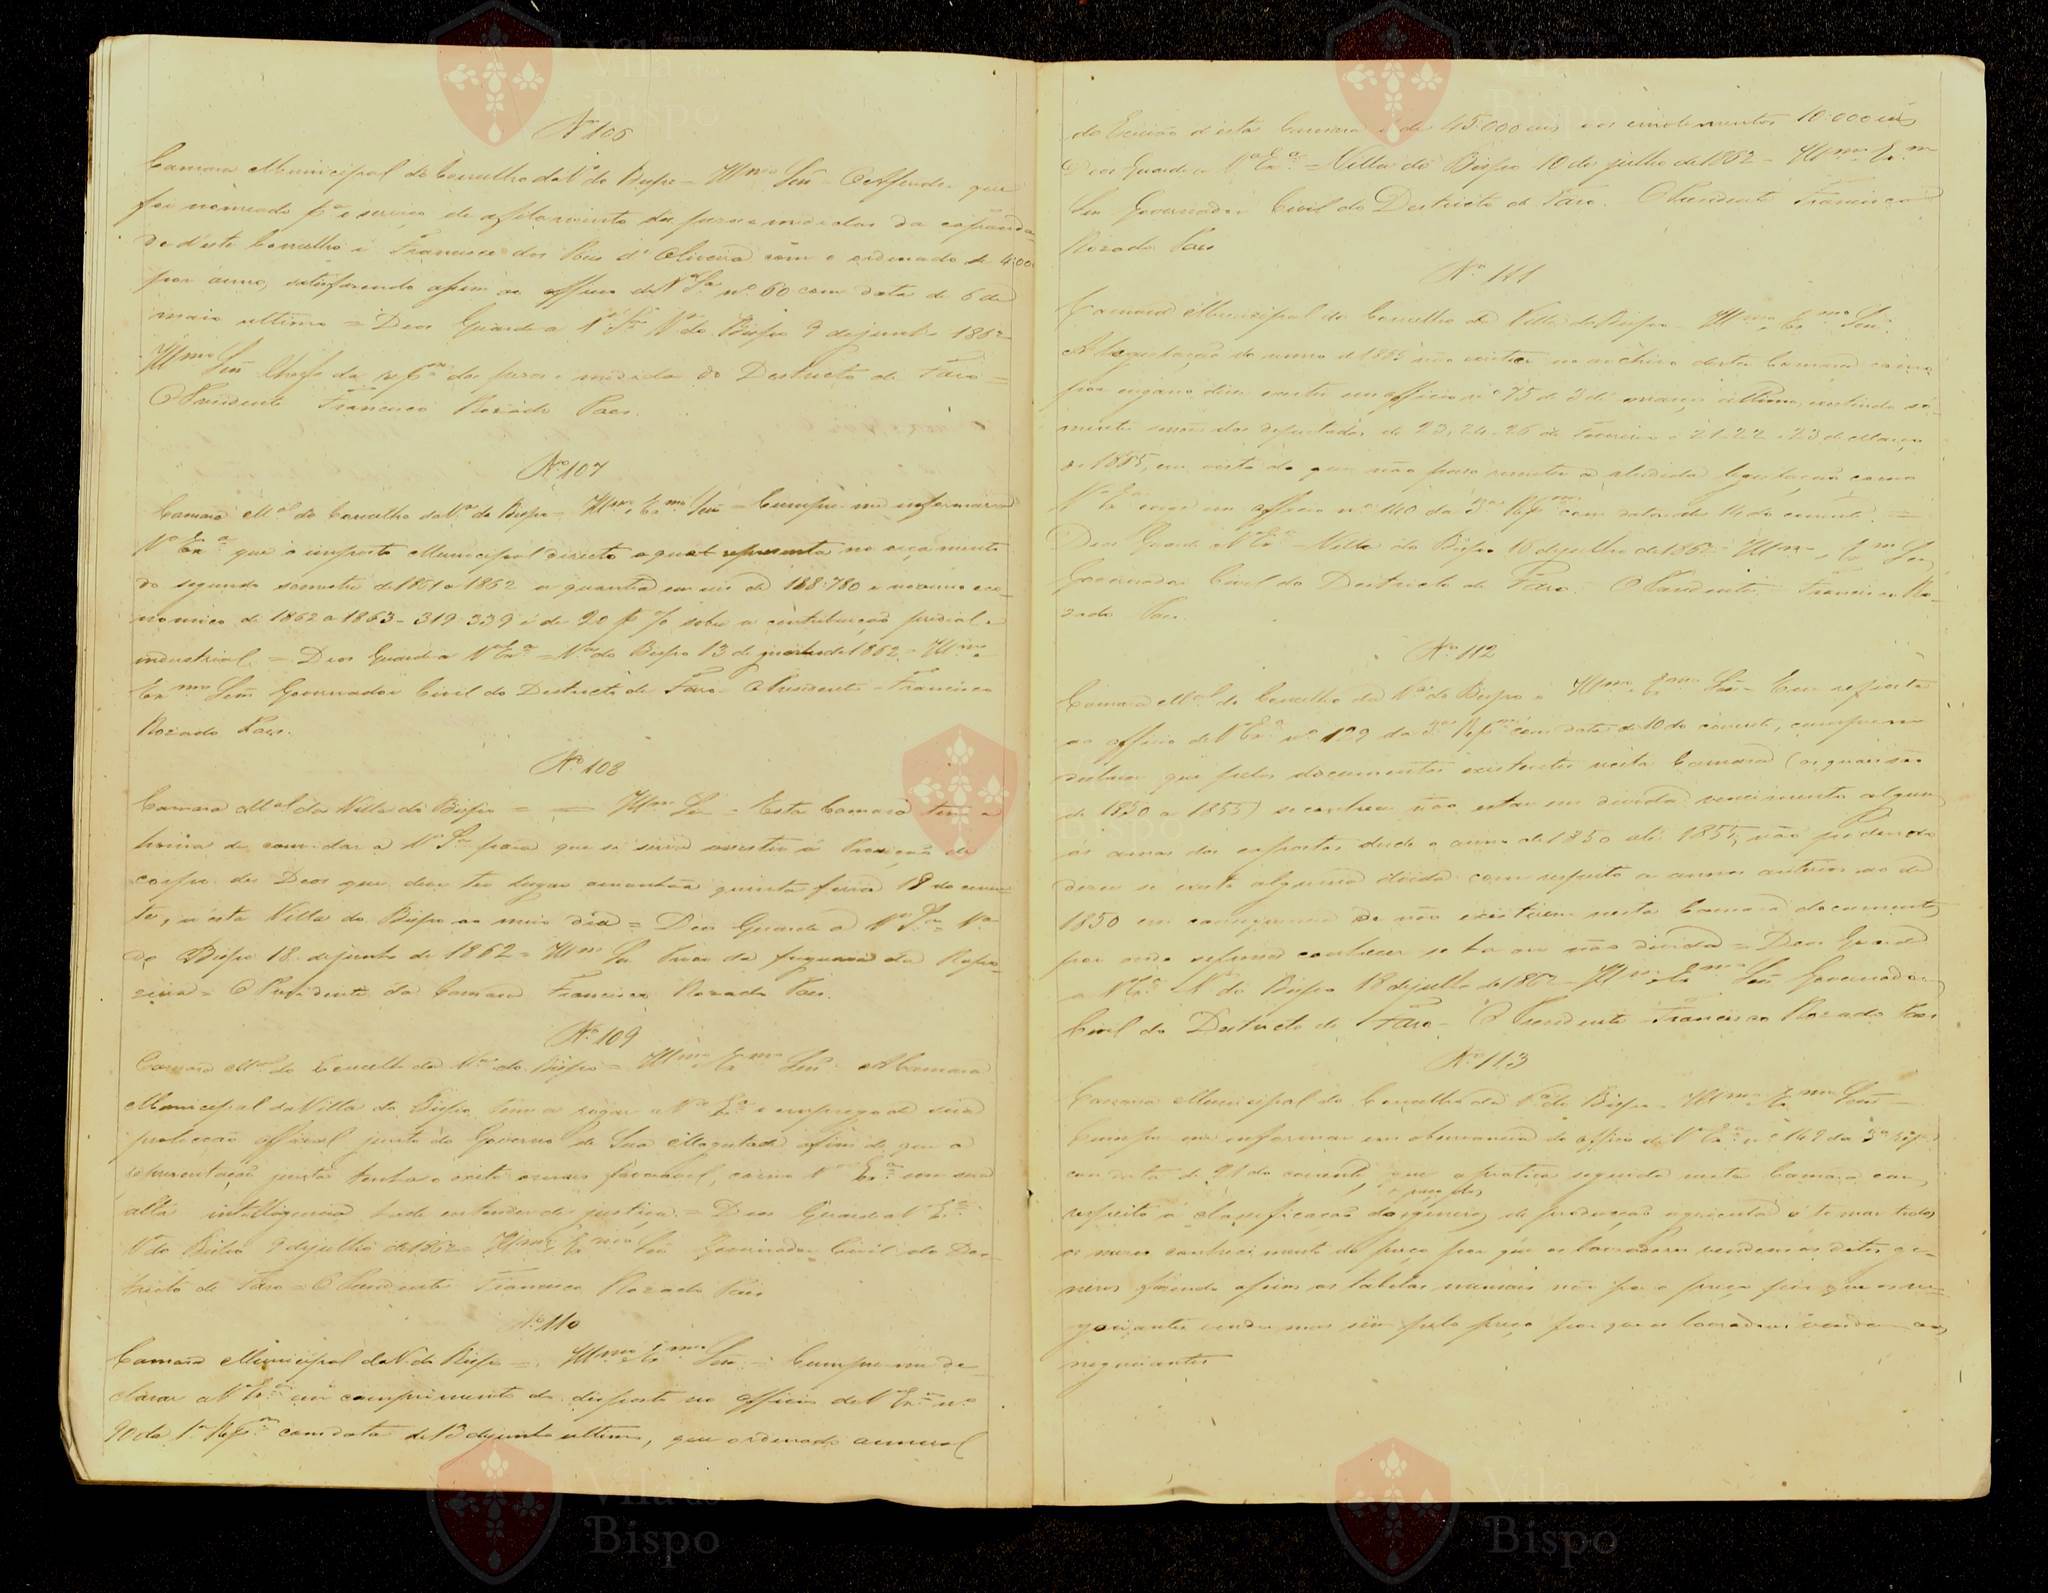 Nº 106
Camara Municipal do Concelho da Vª do Bispo = Illmo Senr = O Afferidor que
foi nomeado pª o serviço de afilamento dos pesos e medidas da
d'este Concelho é Francisco dos Reis d'Oliveira com o ordenado de
por anno, satisfazendo assim ao officio de Vª Sª nº 60 com data de 6 de
maio ultimo = Deos Guarde a Vª Sª Vª do Bispo 9 de junho 1862
Illmo Senr Chefe da repam dos pesos e medidas do Destricto de Faro =
O Presidente Francisco Rozado Paes.
Nº 107
Camara Mal do Concelho da Vª do Bispo = Illmo Exmo Senr = Cumpre-me informar a
Vª Exª que o imposto Municipal directo o qual representa no orçamento
do segundo semestre de 1861 a 1862 a quantia em reis de 168:780 e no anno eco-
nomico de 1862 a 1863 - 319:339 é de 20 p % sobre a contribuição predial e
industrial = Deos Guarde a Vª Exª = Vª do Bispo 13 de junho de 1862 = Illmo
Exmo Senr Governador Civil do Destricto de Faro - O Presidente - Francisco
Rozado Paes.
Nº 108
Camara Mal da Villa do Bispo = = Illmo Sr = Esta Camara tem a
honra de convidar a Vª Sª para que se sirva assistir á Procissão de
corpo de Deos que deve ter lugar amanhãa quinta feira 19 do corren-
te, n'esta Villa do Bispo ao meio dia = Deos Guarde a Vª Sª = Vª
do Bispo 18 de junho de 1862 = Illmo Sr Prior da freguesia da Rapo-
zeira = O Presidente da Camara Francisco Rozado Paes.
Nº 109
Camara Mal do Concelho da Vª do Bispo = Illmo Exmo Senr A Camara
Municipal da Villa do Bispo tem a rogar a Vª Exª o emprego de sua
protecção official junto do Governo de Sua Magestade afim de que a
representação junta tenha o exito favoravel, como Vª Exª em sua
alta intelligencia hade entender de justiça = Deos Guarde a Vª Exª
Vª do Bispo 9 de julho de 1862 = Illmo Exmo Senr Governador Civil do Des-
tricto de Faro = O Presidente Francisco Rozado Paes
Nº 110
Camara Municipal da V. do Bispo = Illmo Exmo Senr = Cumpre-me de-
clarar a Vª Exª em comprimento do disposto no officio de Vª Exª nº
90 da 1ª Repam com data de de junho ultimo, que o ordenado annual
do Escrivão d'esta Camara é de 45:000 reis e os emolumentos 10:000 reis
Deos Guarde a Vª Exª = Villa do Bispo 10 de julho de 1862 - Illmo Exm
Senr Governador Civil do Destricto de Faro. O Presidente Francisco
Rozado Paes
Nº 111
Camara Municipal do Concelho da Villa do Bispo - Illmo Exmo Senr.
A Legislação do anno de 1855 não existe no archivo desta Camara como
por engano disse no officio nº 75 de 3 de março ultimo, existindo só-
mente dos deputados de 23, 24 - 26 de Fevereiro e 21-22 e 23 de Março
de 1855, em vista do que não posso remetter a alludida legislação como
Vª Exª no officio nº 140 da 3ª Repam com data de 14 do corrente =
Deos Guarde a Vª Exª - Villa do Bispo 16 de julho de 1862 - Illmo Exm Senr
Governador Civil do Destricto de Faro. O Presidente - Francisco Ro-
zado Paes.
Nº 112
Camara Mal do Concelho da Vª do Bispo = Illmo Exmo Senr - Em resposta
ao officio de Vª Exª nº 129 da 3ª Repam com data de 10 do corrente, cumpre-me
declarar que pelos documentos existentes nesta Camara (os quaes são
de 1850 a 1855) se conhece não estar em divida vencimento algum
ás amas dos expostos desde o anno de 1850 até 1855, não podendo
dizer se existe alguma divida com respeito a annos anteriores ao de
1850 em consequencia de não existirem nesta Camara documentos
por onde se possa conhecer se ha ou não divida = Deos Guarde
a Vª Exª Vª do Bispo 18 de julho de 1862 - Illmo Exmo Senr Governador
Civil do Destricto de Faro - O Presidente Francisco Rozado Paes
Nº 113
Camara Municipal do Concelho da Vª do Bispo - Illmo Exmo Senr -
Cumpre-me informar em observancia do officio de Vª Exª nº 149 da 3ª Repam
com data de 21 do corrente, que a pratica seguida nesta Camara com
respeito á classificação do preço dos generos de producção agricola é tomar todos
os mezes conhecimento do preço por que os lavradores vendem os ditos ge-
neros fazendo assim as tabelas mensaes não por o preço por que os ne-
gociantes vendem mas sim pelo preço por que os lavradores vendem aos
negociantes
Vila do
Bispo